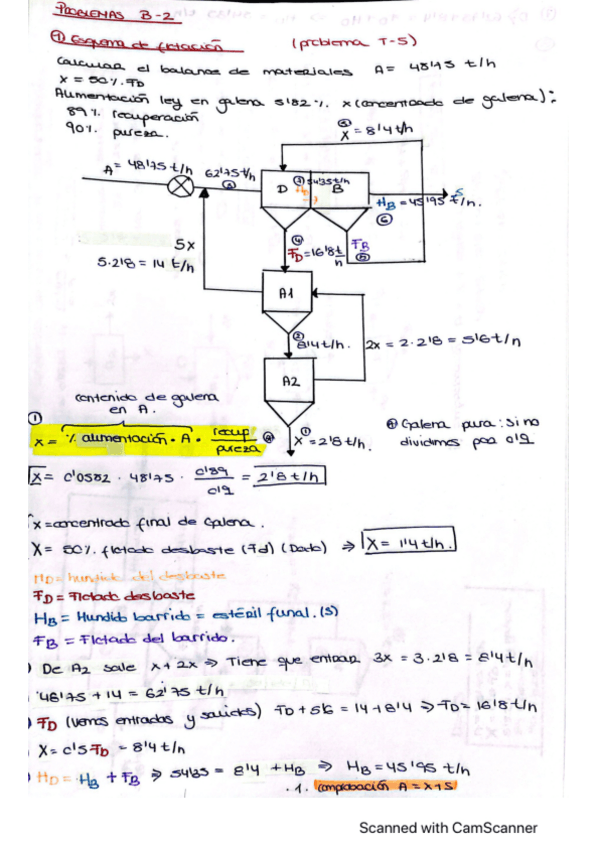 PROBLEMAS B-2
① Esquema de flotación (problema T-5)
Calcular el balance de materiales A = 48'75 t/h
X = 50% FD
Alimentación ley en galena 5'82% x (concentrado de galena):
89% recuperación
90% pureza.
⑤
X = 8'4 t/h
A = 48'75 t/h
62'75 t/h
③
54'35 t/h
D
B
HB = 45'95 t/h.
S
⑥
④
FD = 16'8 t/h
FB
⑤
5x
5·2'8 = 14 t/h
A1
②
8'4 t/h.
2x = 2·2'8 = 5'6 t/h
A2
contenido de galena
en A.
①
X = % alimentación · A · recup/pureza
①
X = 2'8 t/h.
Galena pura: si no
dividimos por 0'9
X = 0'0582 · 48'75 · 0'89/0'9 = 2'8 t/h
x = concentrado final de Galena.
X = 50% flotado desbaste (Fd) (Dato) ⇒ X = 1'4 t/h.
HD = hundido del desbaste
FD = Flotado desbaste
HB = Hundido barrido = estéril final. (S)
FB = Flotado del barrido.
) De A2 sale x + 2x ⇒ Tiene que entrar 3x = 3·2'8 = 8'4 t/h
48'75 + 14 = 62'75 t/h
) FD (vemos entradas y salidas) FD + 5'6 = 14 + 8'4 ⇒ FD = 16'8 t/h
X = 0'5 FD = 8'4 t/h
) HD = HB + FB ⇒ 54'35 = 8'4 + HB ⇒ HB = 45'95 t/h
. 1. Comprobación A = x + S
Scanned with CamScanner